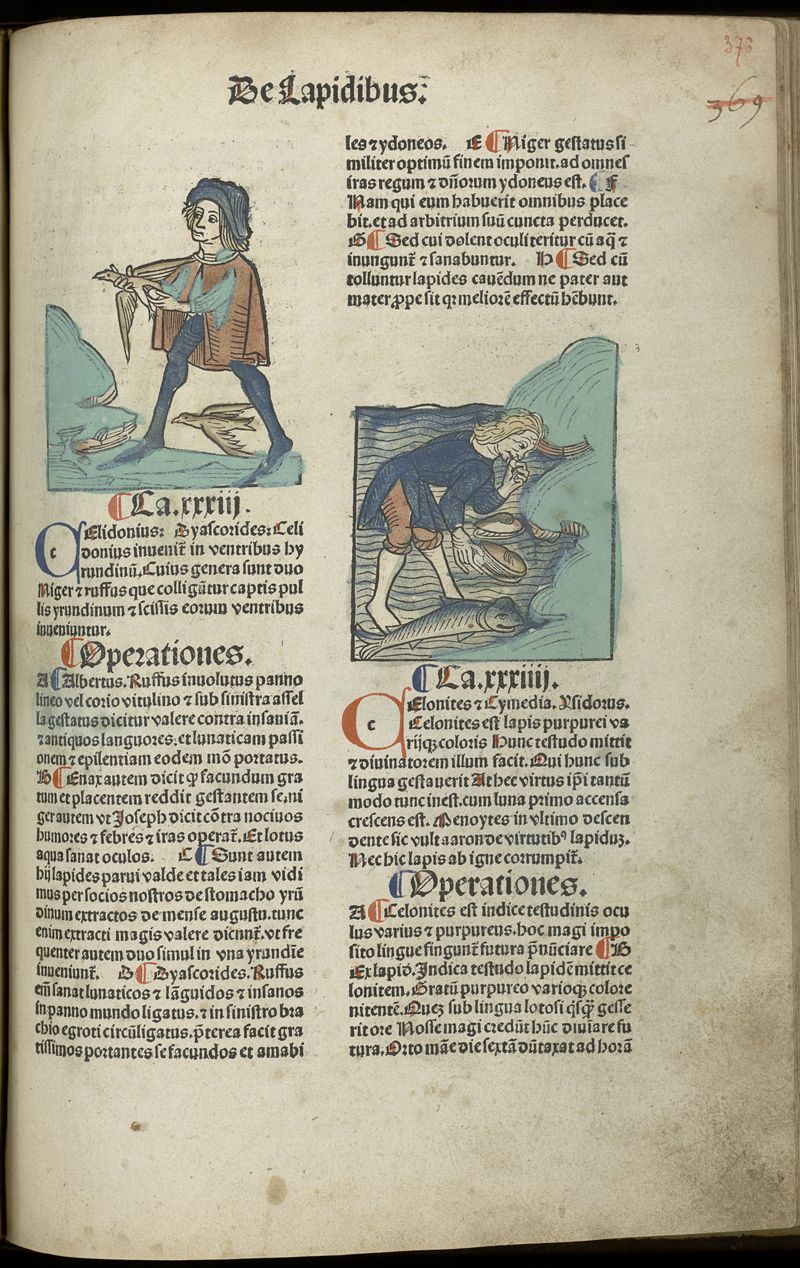 De Lapidibus.
376
369
Ca.xxxiij.
CElidonius: Dyascorides: Celi
donius inuenit̄ in ventribus hy
rundinū. Cuius genera sunt duo
Niger ⁊ ruffus que colligūtur captis pul
lis yrundinum ⁊ scissis eorum ventribus
inueniuntur.
Operationes.
A Albertus. Ruffus inuolutus panno
lineo vel corio vitulino ⁊ sub sinistra assel
la gestatus dicitur valere contra insaniā.
⁊ antiquos languores: et lunaticam passi
onem ⁊ epilentiam eodem mō portatus.
B Enax autem dicit ꝙ facundum gra
tum et placentem reddit gestantem se. ni
ger autem vt Joseph dicit cōtra nociuos
humores ⁊ febres ⁊ iras operat̄. Et lotus
aqua sanat oculos. C Sunt autem
hij lapides parui valde et tales iam vidi
mus per socios nostros de stomacho yrū
dinum extractos de mense augusti. tunc
enim extracti magis valere dicunt̄. vt fre
quenter autem duo simul in vna yrundīe
inueniunt̄. D Dyascorides. Ruffus
em̄ sanat lunaticos ⁊ lāguidos ⁊ insanos
in panno mundo ligatus. ⁊ in sinistro bra
chio egroti circūligatus. p̄terea facit gra
tissimos portantes se facundos et amabi
les ⁊ ydoneos. E Niger gestatus si
militer optimū finem imponit. ad omnes
iras regum ⁊ dn̄orum ydoneus est. F
Nam qui eum habuerit omnibus place
bit. et ad arbitrium suū cuncta perducet.
G Sed cui dolent oculi teritur cū aq̄ ⁊
inungunt̄ ⁊ sanabuntur. H Sed cū
tolluntur lapides cauēdum ne pater aut
mater ꝓpe sit qr meliorē effectū hēbunt.
Ca.xxxiiij.
CElonites ⁊ Cymedia. Ysidorus.
Celonites est lapis purpurei va
rijqꝫ coloris Hunc testudo mittit
⁊ diuinatorem illum facit. Qui hunc sub
lingua gestauerit At hec virtus ip̄i tantū
modo tunc inest. cum luna primo accensa
crescens est. Menoytes in vltimo descen
dente sic vult aaron de virtutibꝰ lapiduꝫ.
Nec hic lapis ab igne corrumpit̄.
Operationes.
A Celonites est indice testudinis ocu
lus varius ⁊ purpureus. hoc magi impo
sito lingue fingunt̄ futura p̄nūciare B
Ex lapid̄. Indica testudo lapidē mittit ce
lonitem. Gratū purpureo varioqꝫ colore
nitentē. Queꝫ sub lingua lotosi qͥsqꝫ gesse
rit ore Nosse magi credūt hūc diuiare fu
tura. Orto māe die sextā dūtaxat ad horā